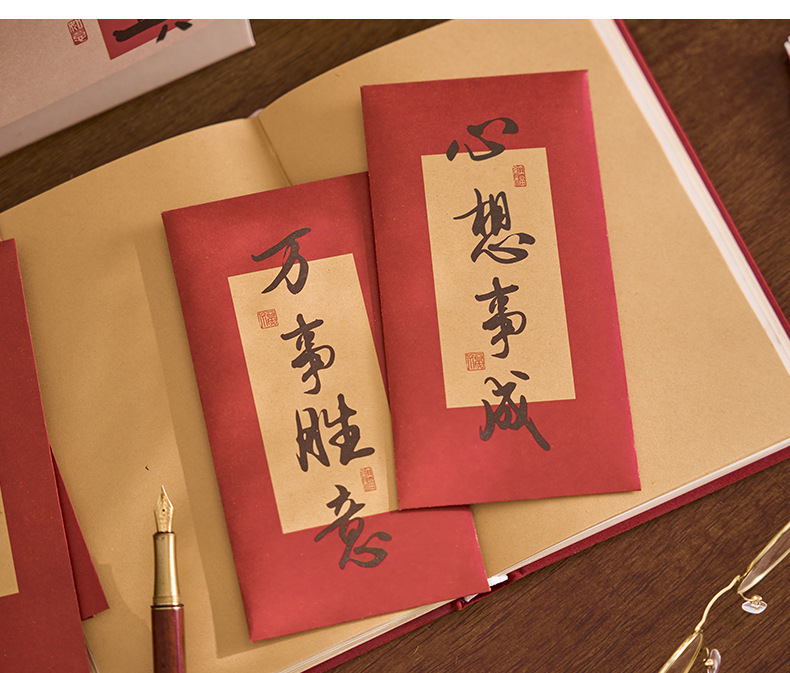 心想事成
万事胜意